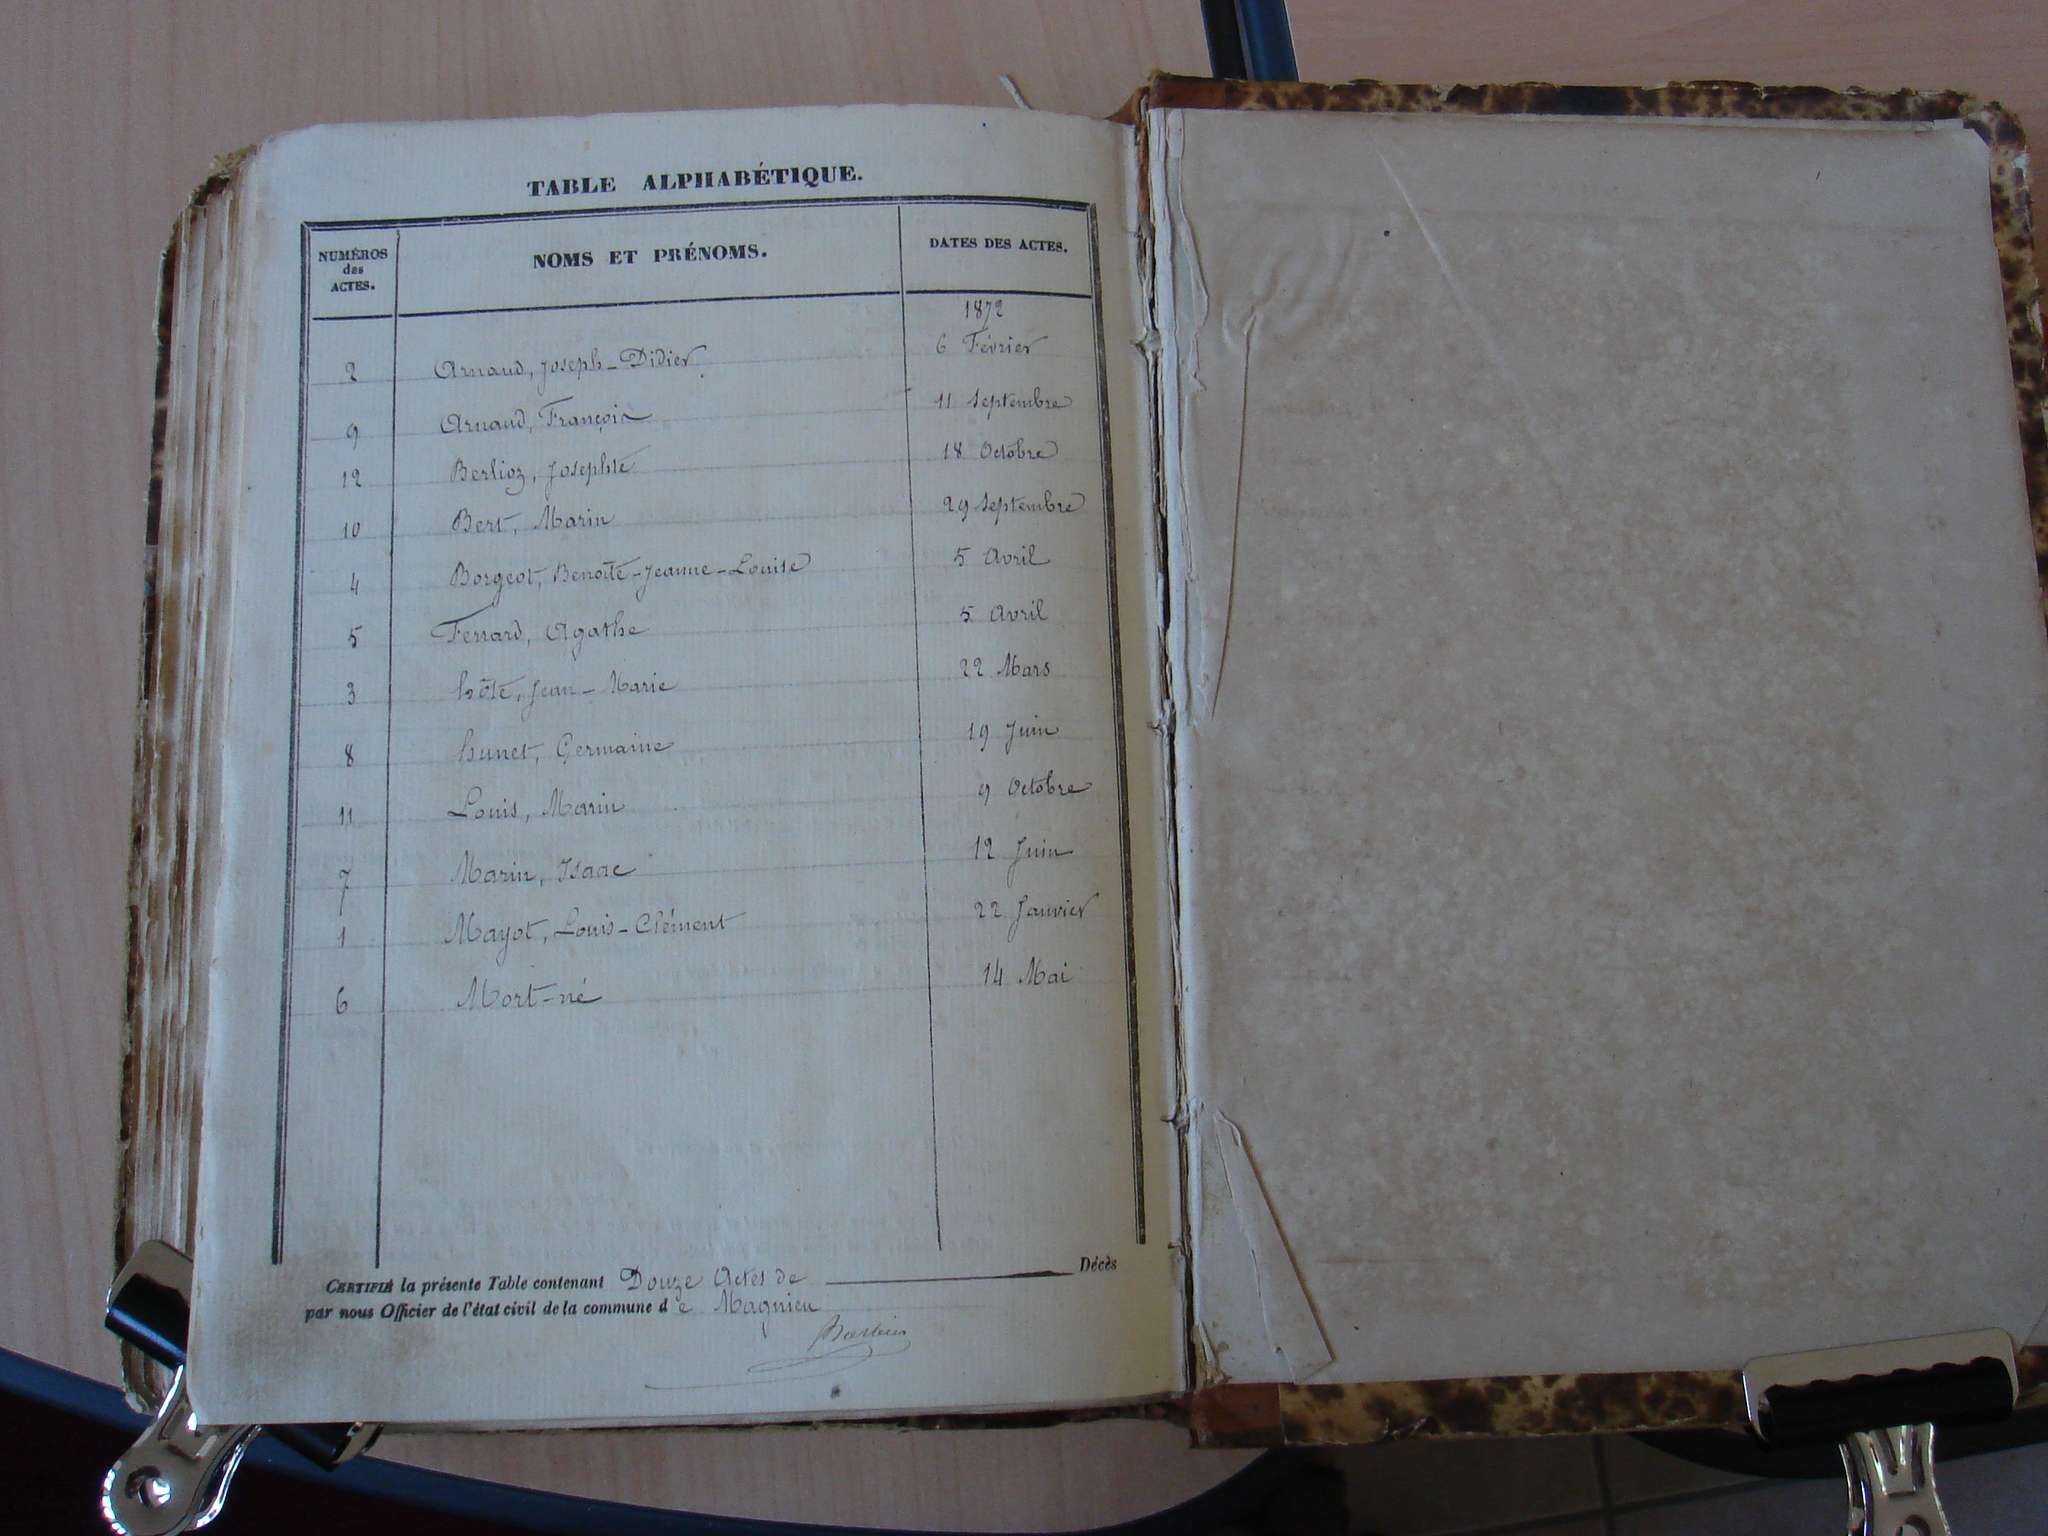 TABLE ALPHABÉTIQUE.
NUMÉROS des ACTES. NOMS ET PRÉNOMS. DATES DES ACTES.
1872
2 Arnaud, Joseph-Didier. 6 Février
9 Arnaud, François 11 Septembre
12 Berlioz, Josephte 18 Octobre
10 Bert, Marin 29 Septembre
4 Borgeot, Benoîte-Jeanne-Louise 5 Avril
5 Ferrard, Agathe 5 Avril
3 hôte, Jean-Marie 22 Mars
8 hunet, Germaine 19 Juin
11 Louis, Marin 9 Octobre
7 Marin, Isaac 12 Juin
1 Mayot, Louis-Clément 22 Janvier
6 Mort-né 14 Mai
CERTIFIÉ la présente Table contenant Douze Actes de Décès
par nous Officier de l'état civil de la commune de Magnieu